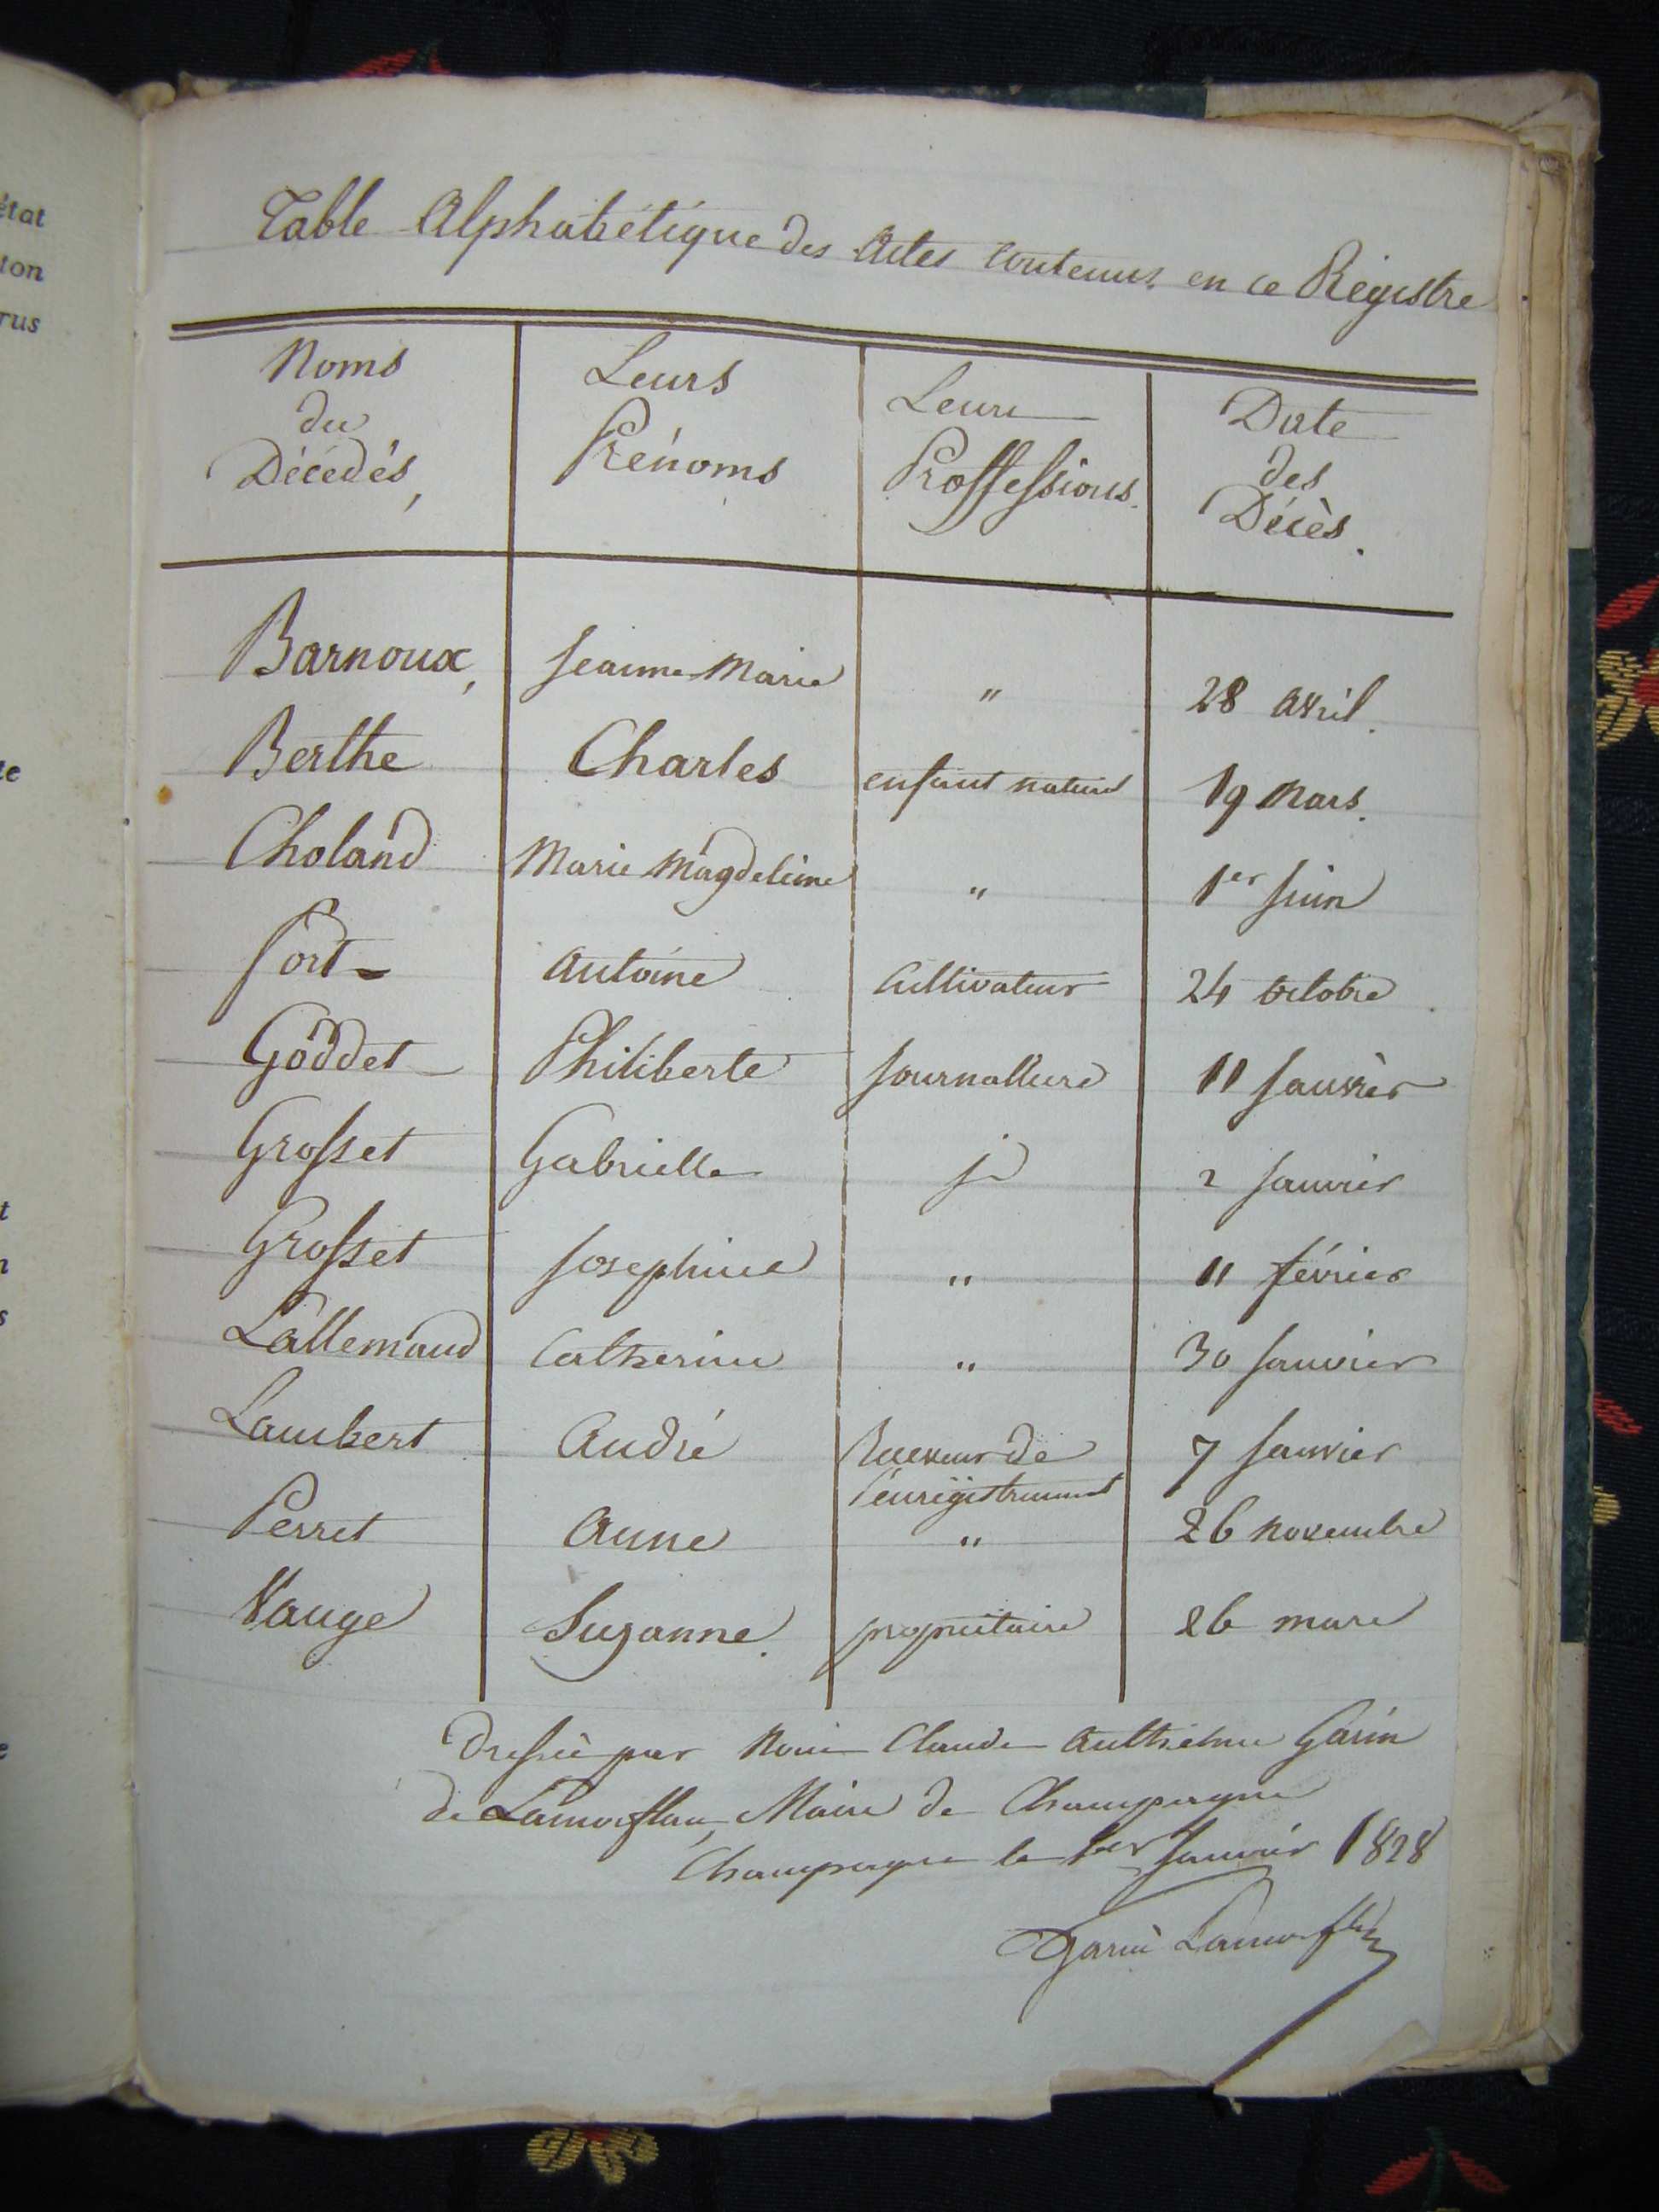 état
ton
rus
te
t
n
s
e
Table Alphabétique des Actes contenus en ce Régistre
Noms
du
Décédés,
Leurs
Prénoms
Leurs
Proffessions.
Date
des
Décès.
Barnoux, Jeanne Marie " 28 avril.
Berthe Charles enfant naturel 19 Mars.
Choland Marie Magdeleine " 1er Juin
Fort - Antoine Cultivateur 24 octobre
Goddet - Philiberte Journalliere 11 Janvier
Grosset Gabrielle id 2 Janvier
Grosset Josephine " 11 février
Lallemand Catherine " 30 Janvier
Lambert André Receveur de 7 Janvier
l'enrégistrement
Perret Anne " 26 Novembre
Vauge Suzanne. propriétaire 26 mars
Dressée par Nous Claude Anthelme Garin
de Lamorflan, Maire de Champagne
Champagne le 1er Janvier 1828
Garin Lamorflan